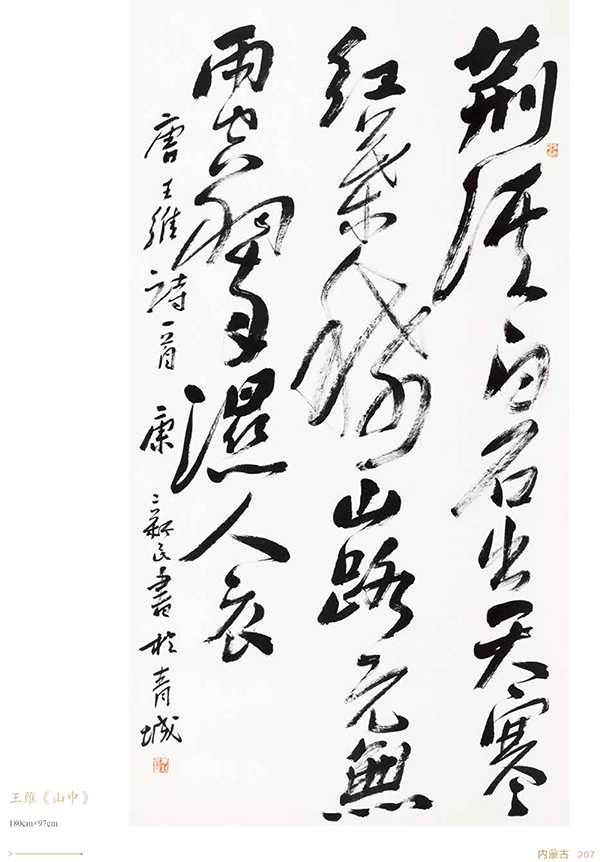 荆溪白石出天寒
紅葉稀山路元無
雨空翠濕人衣
唐王維詩一首 康新民書於青城
王维《山中》
180cm×97cm
内蒙古 207